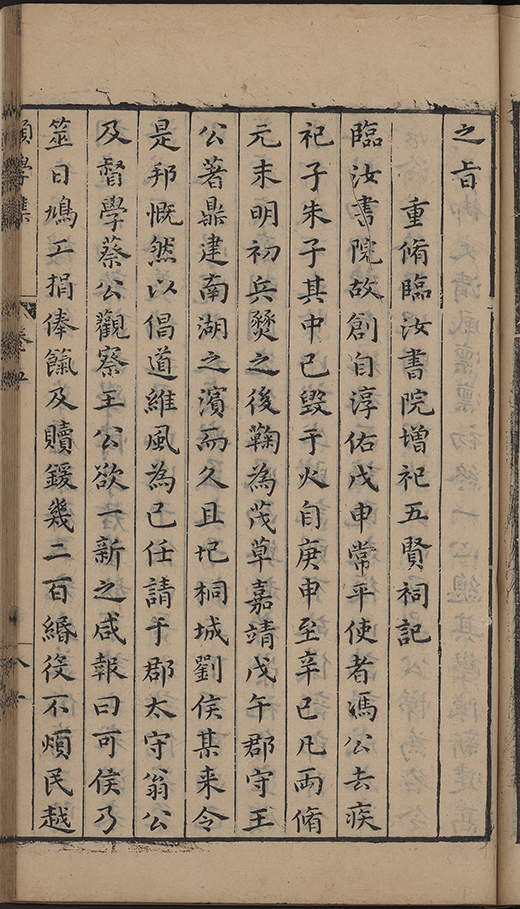 之旨
重脩臨汝書院增祀五賢祠記
臨汝書院故創自淳佑戊申常平使者馮公去疾
祀子朱子其中已毀于火自庚申至辛巳凡兩脩
元末明初兵燹之後鞠為茂草嘉靖戊午郡守王
公著鼎建南湖之濱而久且圮桐城劉侯某来令
是邦慨然以倡道維風為己任請于郡太守翁公
及督學蔡公觀察王公欲一新之咸報曰可侯乃
筮日鳩工捐俸餼及贖鍰幾二百緡役不煩民越
卷五